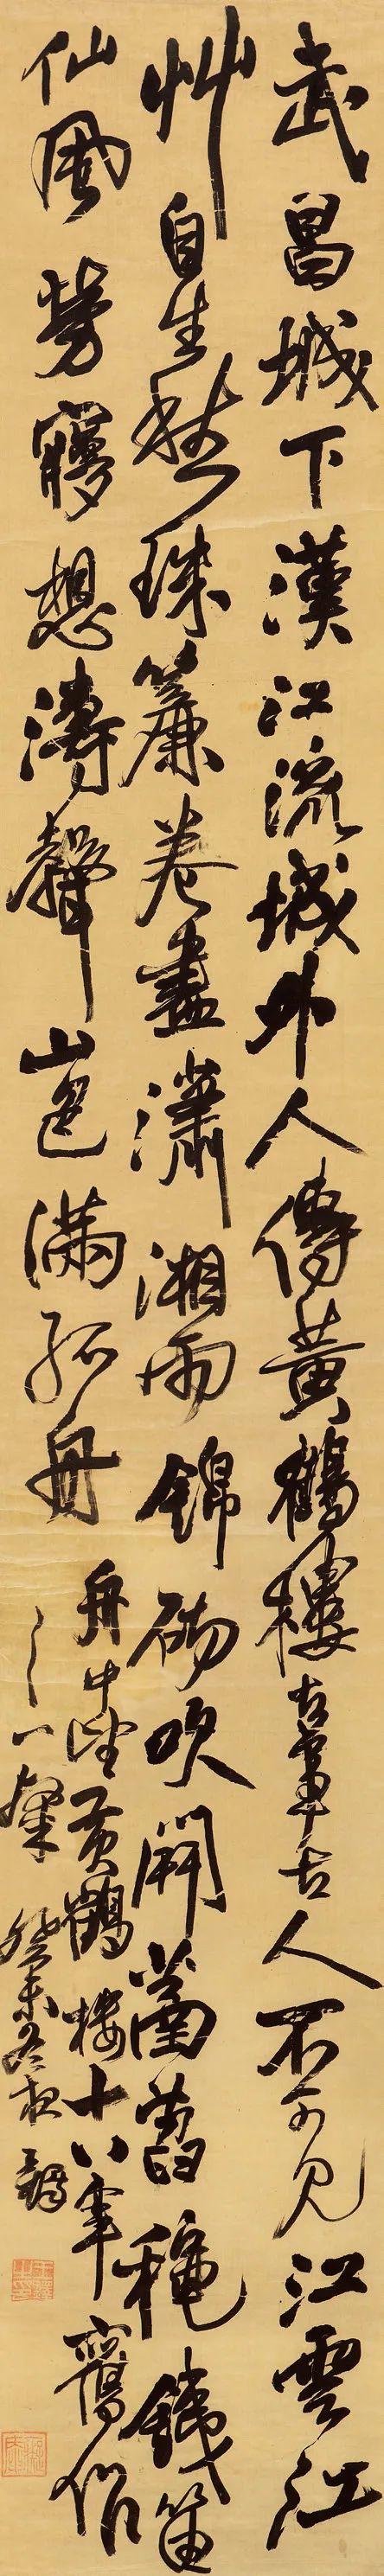 武昌城下漢江流城外人傳黃鶴樓古事古人不可見江雲江
艸自生愁珠簾卷盡瀟湘雨錦砌吹開菡萏穐鐵笛
仙風勞寤想濤聲山邑滿孤舟
舟中望黃鶴樓十八年舊作
一癸未冬夜鐸